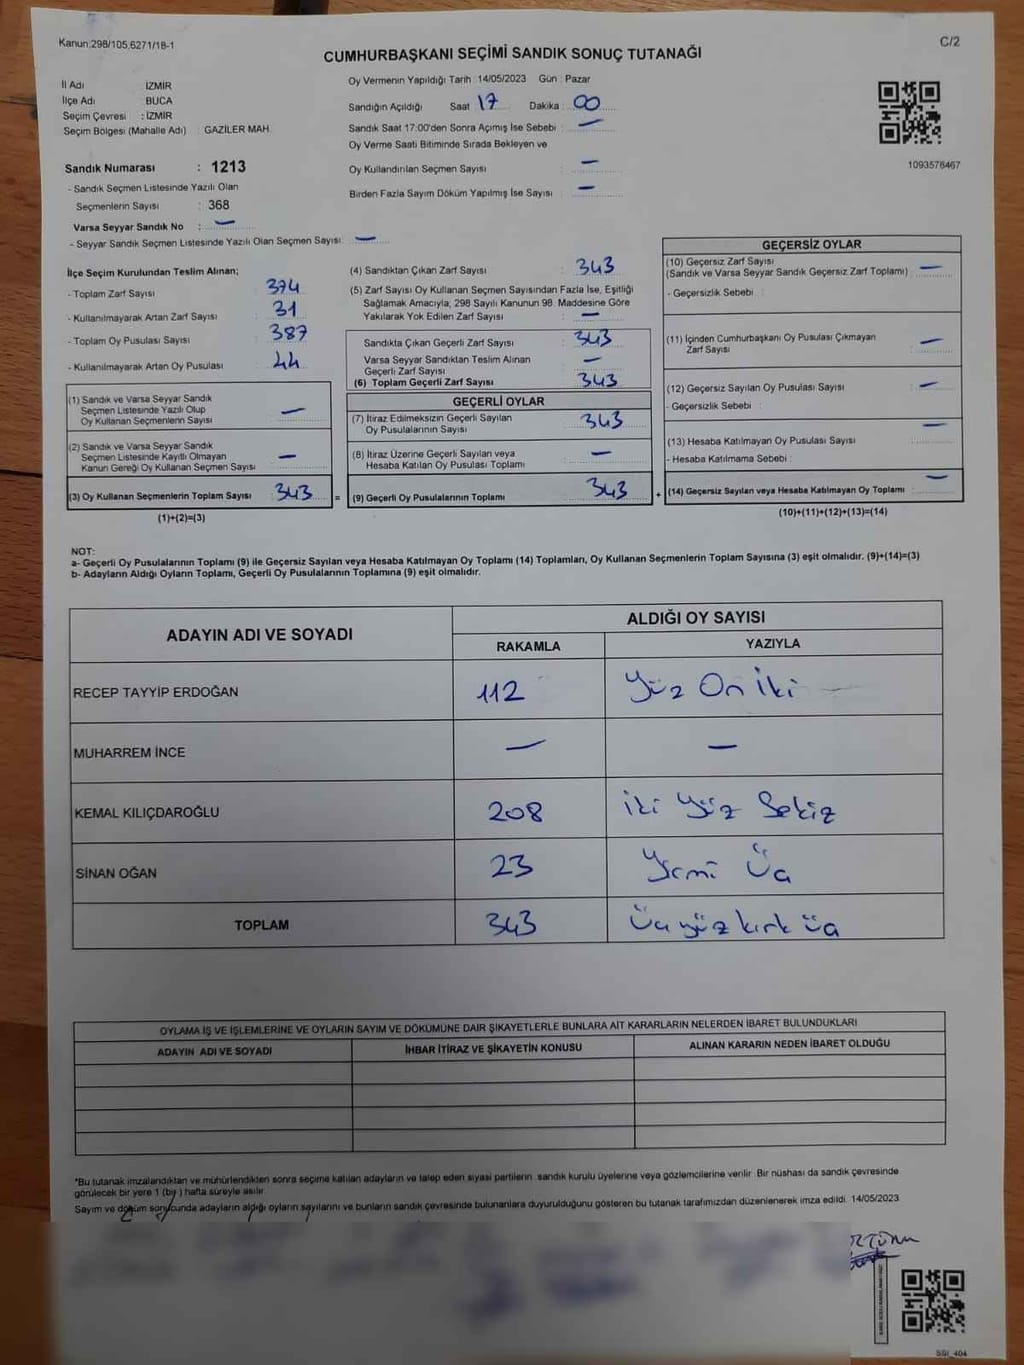 Kanun:298/105,6271/18-1
C/2
CUMHURBAŞKANI SEÇİMİ SANDIK SONUÇ TUTANAĞI
İl Adı : İZMİR
İlçe Adı : BUCA
Seçim Çevresi : İZMİR
Seçim Bölgesi (Mahalle Adı) : GAZİLER MAH.
Oy Vermenin Yapıldığı Tarih :14/05/2023 Gün : Pazar
Sandığın Açıldığı Saat 17 Dakika : 00
Sandık Saat 17:00'den Sonra Açımış İse Sebebi : —
Oy Verme Saati Bitiminde Sırada Bekleyen ve
Oy Kullandırılan Seçmen Sayısı : —
Birden Fazla Sayım Döküm Yapılmış İse Sayısı : —
1093578467
Sandık Numarası : 1213
- Sandık Seçmen Listesinde Yazılı Olan
Seçmenlerin Sayısı : 368
Varsa Seyyar Sandık No : —
- Seyyar Sandık Seçmen Listesinde Yazılı Olan Seçmen Sayısı: —
İlçe Seçim Kurulundan Teslim Alınan;
- Toplam Zarf Sayısı : 374
- Kullanılmayarak Artan Zarf Sayısı : 31
- Toplam Oy Pusulası Sayısı : 387
- Kullanılmayarak Artan Oy Pusulası : 44
(1) Sandık ve Varsa Seyyar Sandık
Seçmen Listesinde Yazılı Olup
Oy Kullanan Seçmenlerin Sayısı : —
(2) Sandık ve Varsa Seyyar Sandık
Seçmen Listesinde Kayıtlı Olmayan
Kanun Gereği Oy Kullanan Seçmen Sayısı : —
(3) Oy Kullanan Seçmenlerin Toplam Sayısı : 343 =
(1)+(2)=(3)
(4) Sandıktan Çıkan Zarf Sayısı : 343
(5) Zarf Sayısı Oy Kullanan Seçmen Sayısından Fazla İse, Eşitliği
Sağlamak Amacıyla, 298 Sayılı Kanunun 98. Maddesine Göre
Yakılarak Yok Edilen Zarf Sayısı : —
Sandıkta Çıkan Geçerli Zarf Sayısı : 343
Varsa Seyyar Sandıktan Teslim Alınan
Geçerli Zarf Sayısı : —
(6) Toplam Geçerli Zarf Sayısı : 343
GEÇERLİ OYLAR
(7) İtiraz Edilmeksizin Geçerli Sayılan
Oy Pusulalarının Sayısı : 343
(8) İtiraz Üzerine Geçerli Sayılan veya
Hesaba Katılan Oy Pusulası Toplamı : —
(9) Geçerli Oy Pusulalarının Toplamı : 343 +
GEÇERSİZ OYLAR
(10) Geçersiz Zarf Sayısı
(Sandık ve Varsa Seyyar Sandık Geçersiz Zarf Toplamı) : —
- Geçersizlik Sebebi :
(11) İçinden Cumhurbaşkanı Oy Pusulası Çıkmayan
Zarf Sayısı : —
(12) Geçersiz Sayılan Oy Pusulası Sayısı : —
- Geçersizlik Sebebi :
(13) Hesaba Katılmayan Oy Pusulası Sayısı : —
- Hesaba Katılmama Sebebi :
(14) Geçersiz Sayılan veya Hesaba Katılmayan Oy Toplamı : —
(10)+(11)+(12)+(13)=(14)
NOT:
a- Geçerli Oy Pusulalarının Toplamı (9) ile Geçersiz Sayılan veya Hesaba Katılmayan Oy Toplamı (14) Toplamları, Oy Kullanan Seçmenlerin Toplam Sayısına (3) eşit olmalıdır. (9)+(14)=(3)
b- Adayların Aldığı Oyların Toplamı, Geçerli Oy Pusulalarının Toplamına (9) eşit olmalıdır.
ADAYIN ADI VE SOYADI
ALDIĞI OY SAYISI
RAKAMLA YAZIYLA
RECEP TAYYİP ERDOĞAN 112 Yüz On İki —
MUHARREM İNCE — —
KEMAL KILIÇDAROĞLU 208 İki Yüz Sekiz
SİNAN OĞAN 23 Yirmi Üç
TOPLAM 343 Üç yüz kırk üç
OYLAMA İŞ VE İŞLEMLERİNE VE OYLARIN SAYIM VE DÖKÜMÜNE DAİR ŞİKAYETLERLE BUNLARA AİT KARARLARIN NELERDEN İBARET BULUNDUKLARI
ADAYIN ADI VE SOYADI İHBAR İTİRAZ VE ŞİKAYETİN KONUSU ALINAN KARARIN NEDEN İBARET OLDUĞU
*Bu tutanak imzalandıktan ve mühürlendikten sonra seçime katılan adayların ve talep eden siyasi partilerin sandık kurulu üyelerine veya gözlemcilerine verilir. Bir nüshası da sandık çevresinde
görülecek bir yere 1 (bir) hafta süreyle asılır.
Sayım ve döküm sonucunda adayların aldığı oyların sayılarını ve bunların sandık çevresinde bulunanlara duyurulduğunu gösteren bu tutanak tarafımızdan düzenlenerek imza edildi. 14/05/2023
SGI_404